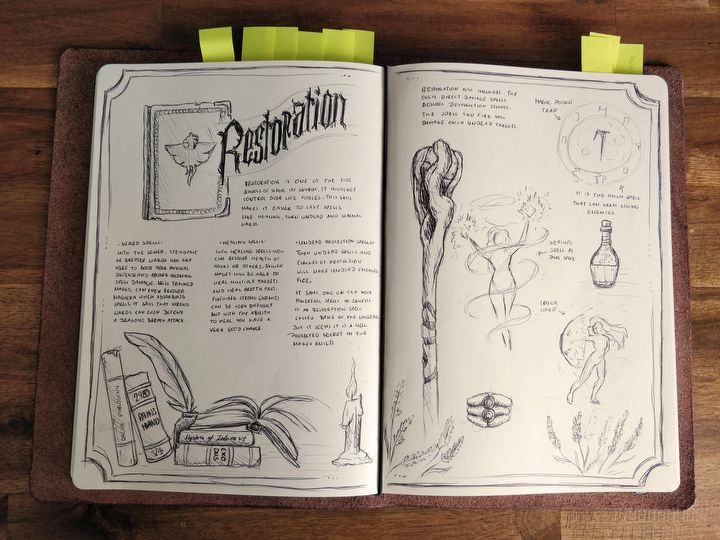 Restoration
RESTORATION IS ONE OF THE FIVE
SCHOOLS OF MAGIC IN SKYRIM, IT INVOLVES
CONTROL OVER LIFE FORCES. THIS SKILL
MAKES IT EASIER TO CAST SPELLS
LIKE HEALING, TURN UNDEAD AND MAGICAL
WARDS.
- WARD SPELLS -
WITH THE LESSER, STEADFAST
OR GREATER WARDS YOU ARE
ABLE TO BOOST YOUR PHYSICAL
DEFENSE AND ABSORB INCOMING
SPELL DAMAGE. WELL TRAINED
MAGES, CAN EVEN RECOVER
MAGICKA WHEN ABSORBING
SPELLS. IT SAYS THAT STRONG
WARDS CAN EVEN DEFEND
A DRAGONS BREATH ATTACK.
- HEALING SPELLS -
WITH HEALING SPELLS YOU
CAN RESTORE HEALTH OF
YOURS OR OTHERS. SKILLED
MAGES WILL BE ABLE TO
HEAL MULTIPLE TARGETS
AND HEAL PRETTY FAST.
FIGHTING STRONG ENEMIES
CAN BE VERY DIFFICULT
BUT WITH THE ABILITY
TO HEAL, YOU HAVE A
VERY GOOD CHANCE.
- UNDEAD PROTECTION SPELLS -
TURN UNDEAD SPELLS AND
CIRCLES OF PROTECTION
WILL MAKE UNDEAD CREATURES
FLEE.
IT SAYS, ONE OF THE MOST
POWERFUL SPELLS IN SKYRIM
IS AN RESTORATION SPELL
CALLED BANE OF THE UNDEAD.
BUT IT SEEMS IT IS A WELL
PROTECTED SECRET IN THE
MAGES GUILD.
2920
RAINS
HAND
V4
RESTORATION ALSO INCLUDES THE
ONLY DIRECT DAMAGE SPELLS
BESIDES DESTRUCTION SCHOOL.
THE SPELL SUN FIRE WILL
DAMAGE ONLY UNDEAD TARGETS.
MAGIC POISON
TRAP
IT IS THE ONLY SPELL
THAT CAN HARM LIVING
ENEMIES
HEALING
SPELL AS
DUAL SPELL
LESSER
WARD